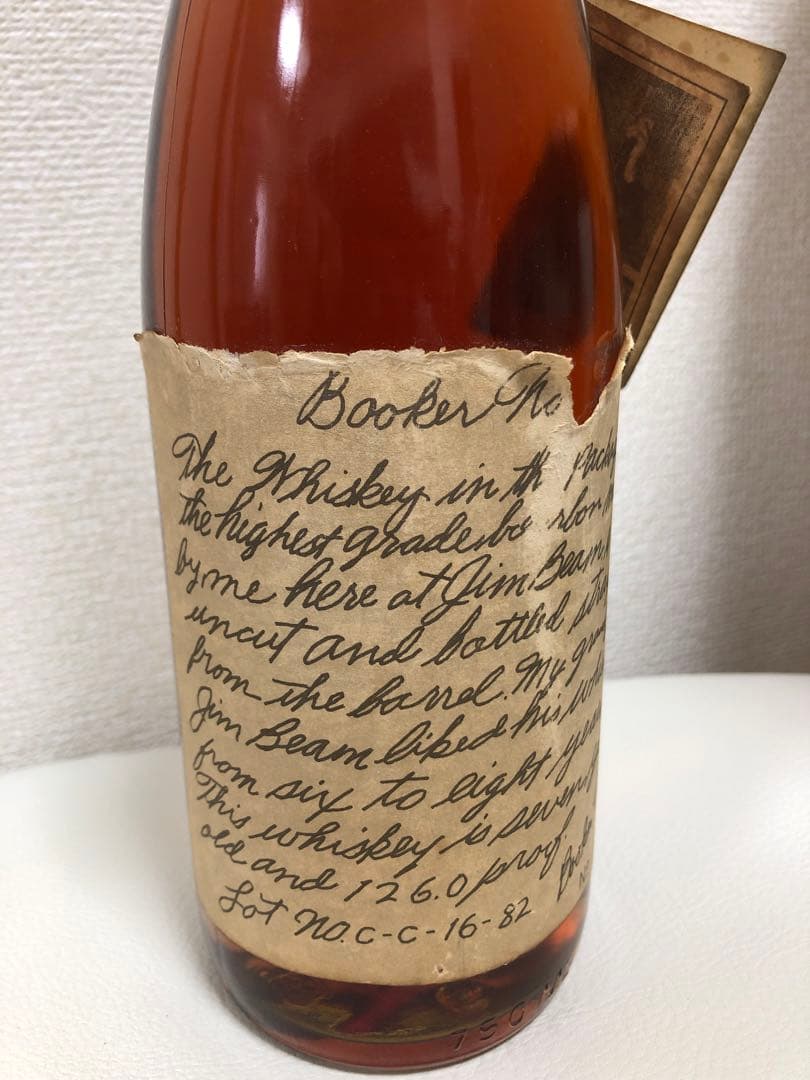 Booker No
The Whiskey in th
the highest grade bo rbon
by me here at Jim Beam,
uncut and bottled
from the barrel. My
Jim Beam liked his
from six to eight
This whiskey is seven
old and 126.0 proof.
Lot No. C-C-16-82
750